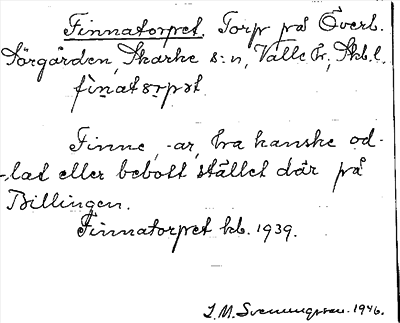 Finnatorpet. Torp på Överb.
Sörgården, Skarke s:n, Valle hr, Skb. l.
fìnatårpət.
Finne, -ar, ha kanske od-
lat eller bebott stället där på
Billingen.
Finnatorpet kb. 1939.
J. M. Svenungsson. 1946.